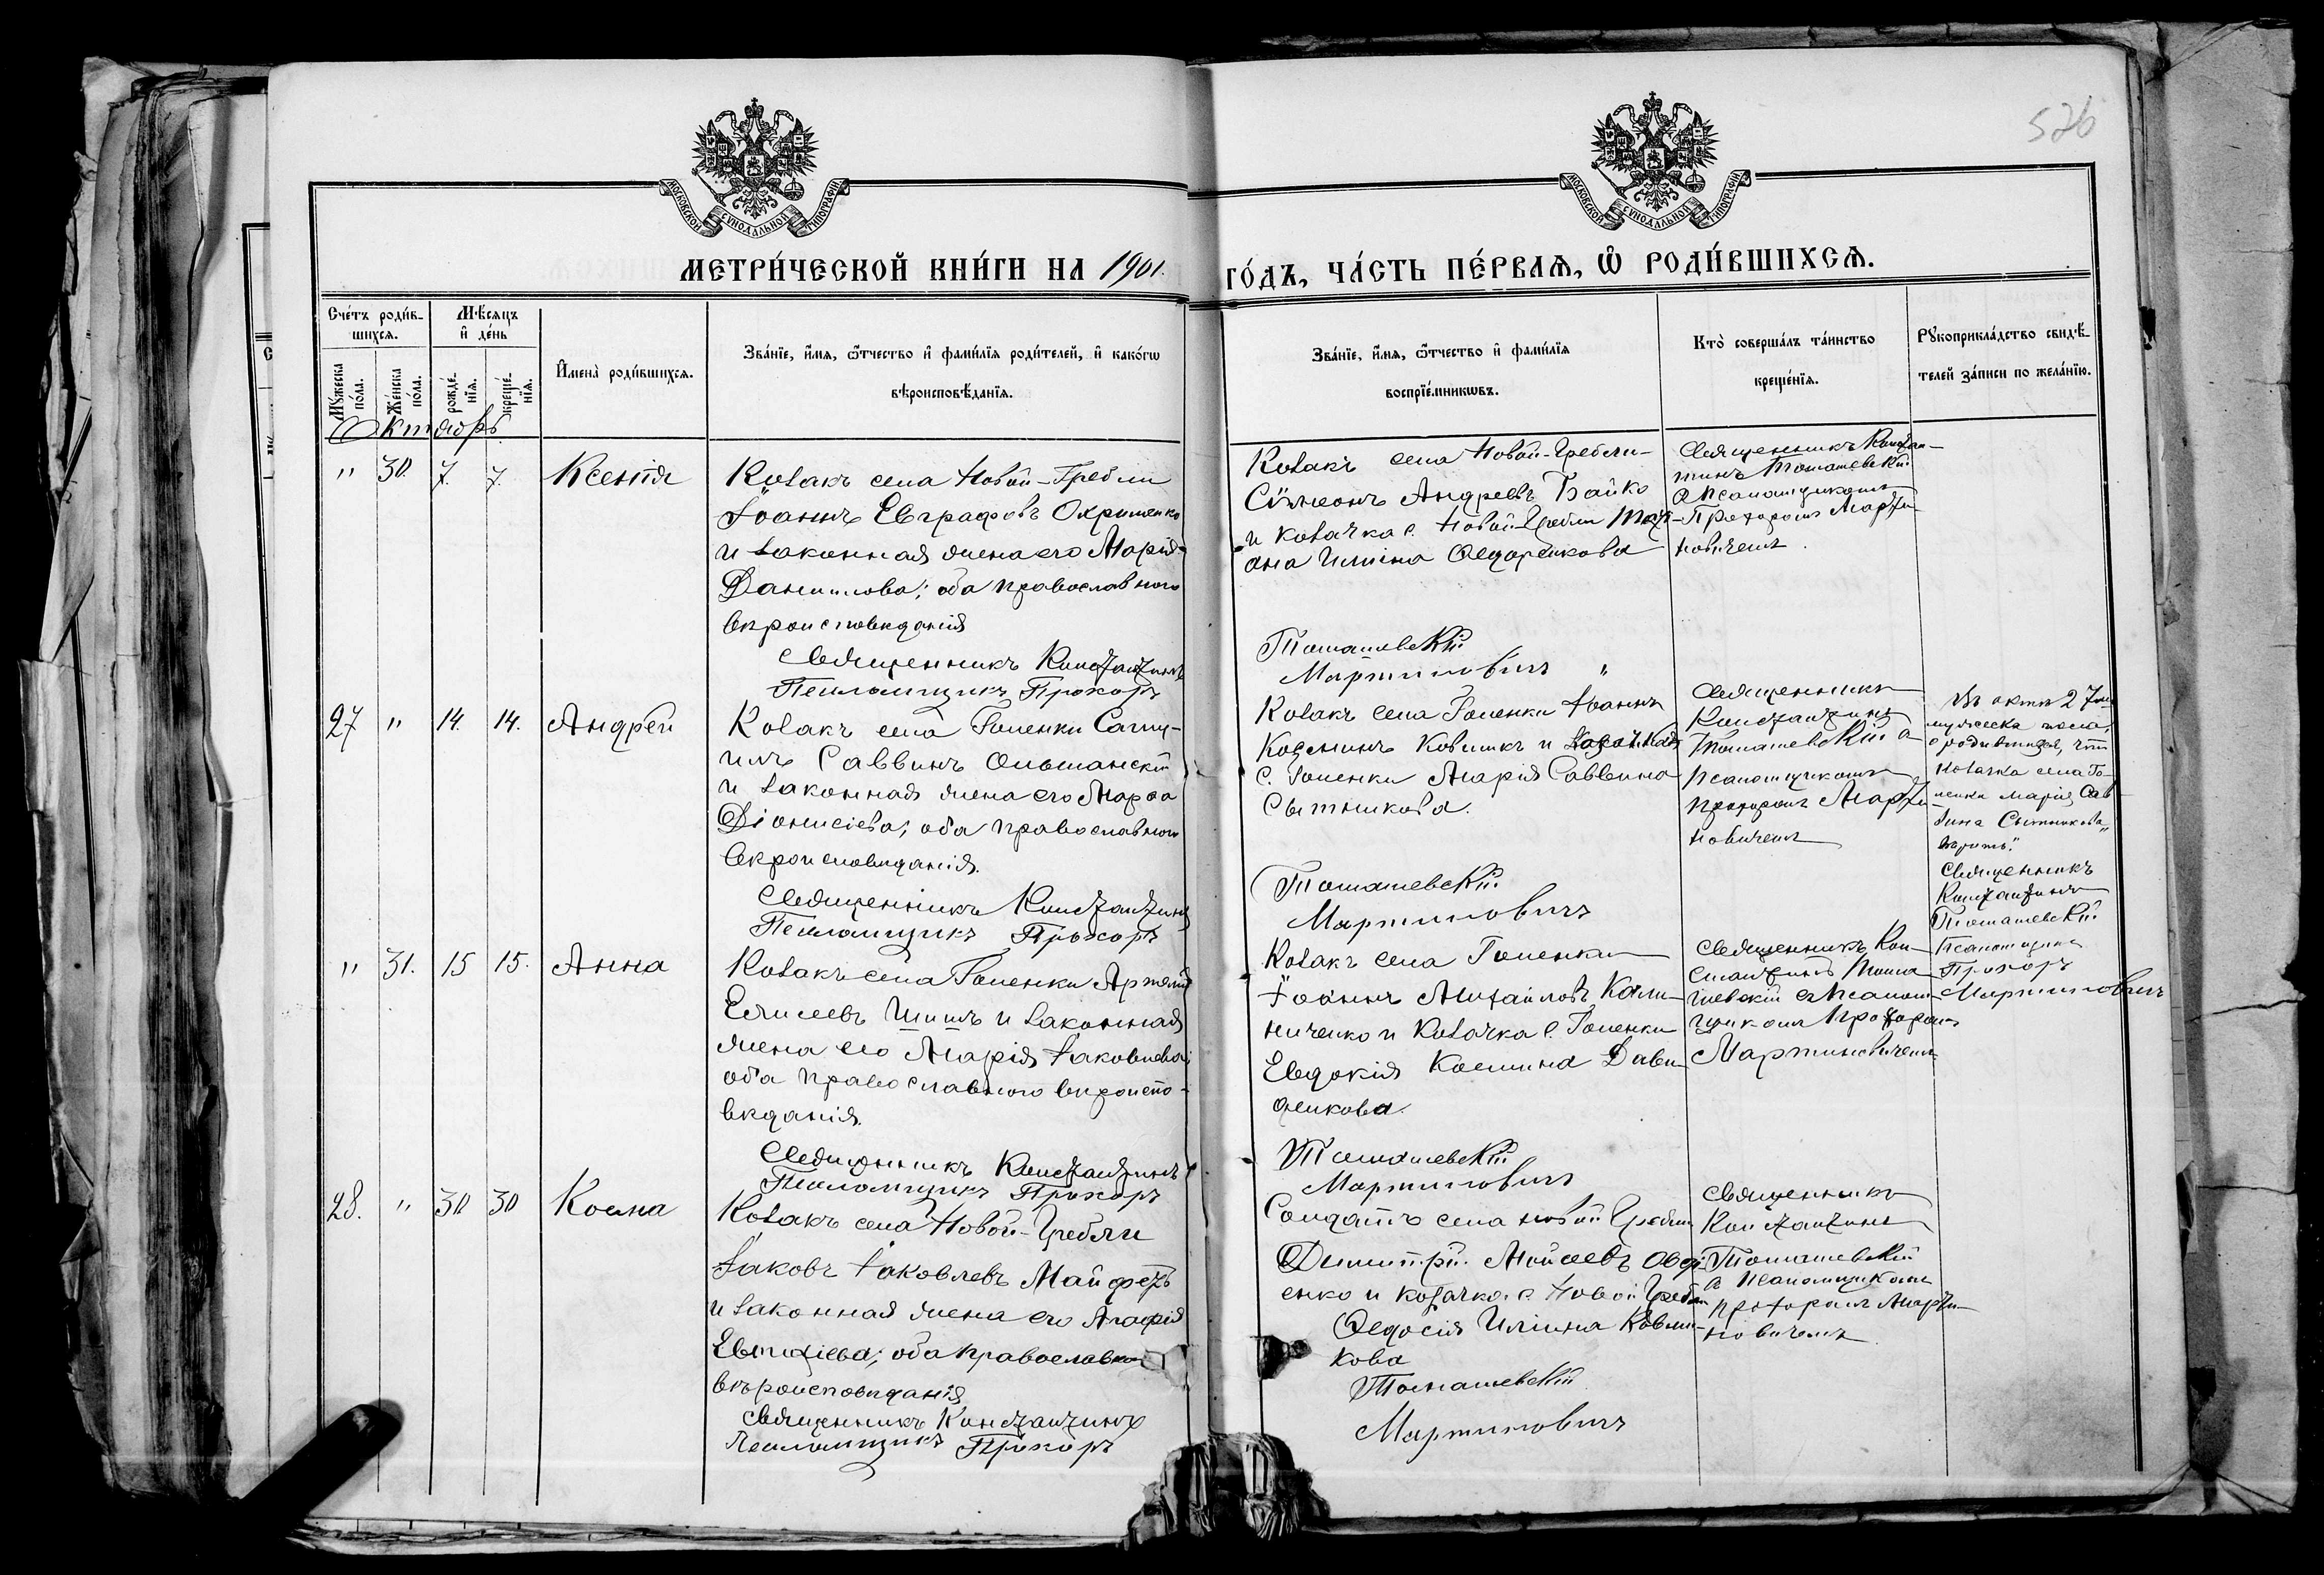 526
МОСКОВСКОЙ СУНОДАЛЬНОЙ ТИПОГРАФІИ
МОСКОВСКОЙ СУНОДАЛЬНОЙ ТИПОГРАФІИ
МЕТРИ́ЧЕСКОЙ КНИ́ГИ НА 1901. ГО́ДЪ, ЧА́СТЬ ПЕ́РВАѦ, Ѡ РОДИ́ВШИХСѦ.
Сче́тъ роди́в-
шихсѧ.
Мꙋжеска по́ла.
Же́нска по́ла.
Мѣ́сѧцъ
и҆ де́нь
рожде́-
нїѧ.
креще́-
нїѧ.
И҆мена̀ роди́вшихсѧ.
Зва́нїе, и҆́мѧ, ѻ҆́тчество и҆ фами́лїѧ роди́телей, и҆ како́гѡ
вѣроисповѣ́данїѧ.
Зва́нїе, и҆́мѧ, ѻ҆́тчество и҆ фами́лїѧ
воспрїе́мникѡвъ.
Кто̀ соверша́лъ та́инство
креще́нїѧ.
Рꙋкоприкла́дство свидѣ́-
телей за́писи по жела́нїю.
Октябрь
" 30. 7. 7. Ксенія
Козакъ села Новой-Гребли
Іоаннъ Евграфовъ Охрименко
и законная жена его Марія
Данилова; оба православного
вѣроисповѣданія
Священникъ Константинъ
Псаломщикъ Прохоръ
Козакъ села Новой-Гребли
Сѵмеонъ Андреевъ Байко
и козачка с. Новой-Гребли
Иліина Ѳедоренкова
Томашевскій
Мартиновичъ
Священникъ Констан-
тинъ Томашевскій
съ псаломщикомъ
Прохоромъ Марти-
новичемъ.
27 " 14. 14. Андрей
Козакъ села Голенки Саму-
илъ Саввинъ Ольшанскій
и законная жена его Марфа
Діонисіева; оба православного
вѣроисповѣданія.
Священникъ Константинъ
Псаломщикъ Прохоръ
Козакъ села Голенки Іоаннъ
и
с. Голенки Марія Саввина
Сытникова.
Томашевскій
Мартиновичъ
Священникъ
Константинъ
Томашевскій съ
псаломщикомъ
Прохоромъ Марти-
новичемъ
Въ актѣ 27
мужеска пола,
о родившихся, что
козачка села Го-
ленки Марія Сав
вина Сытникова"
вѣрить."
Священникъ
Константинъ
Томашевскій
Псаломщикъ
Прохоръ
Мартиновичъ
" 31. 15 15. Анна
Козакъ села Голенки Артемій
Елисеевъ Шишъ и законная
жена его Марія Іаковлева;
оба православного вѣроиспо-
вѣданія.
Священникъ Константинъ
Псаломщикъ Прохоръ
Козакъ села Голенки
Іоаннъ Михайловъ Кали-
ниченко и козачка с. Голенки
Евдокія Космина Дави-
денкова.
Томашевскій
Мартиновичъ
Священникъ Кон-
стантинъ Тома-
шевскій съ псалом-
щикомъ Прохоромъ
Мартиновичемъ
28. " 30 30 Косма
Козакъ села Новой-Гребли
Іаковъ Іаковлевъ Майфетъ
и законная жена его Агафія
Евтихіева; оба православнаго
вѣроисповѣданія
Священникъ Константинъ
Псаломщикъ Прохоръ
Солдатъ села Новой Гребли
Димитрій Моѵсеевъ Овді-
енко и козачка с. Новой Гребли
Ѳедосія Иліина
кова
Томашевскій
Мартиновичъ
Священникъ
Константинъ
Томашевскій
съ псаломщикомъ
Прохоромъ Марти-
новичемъ